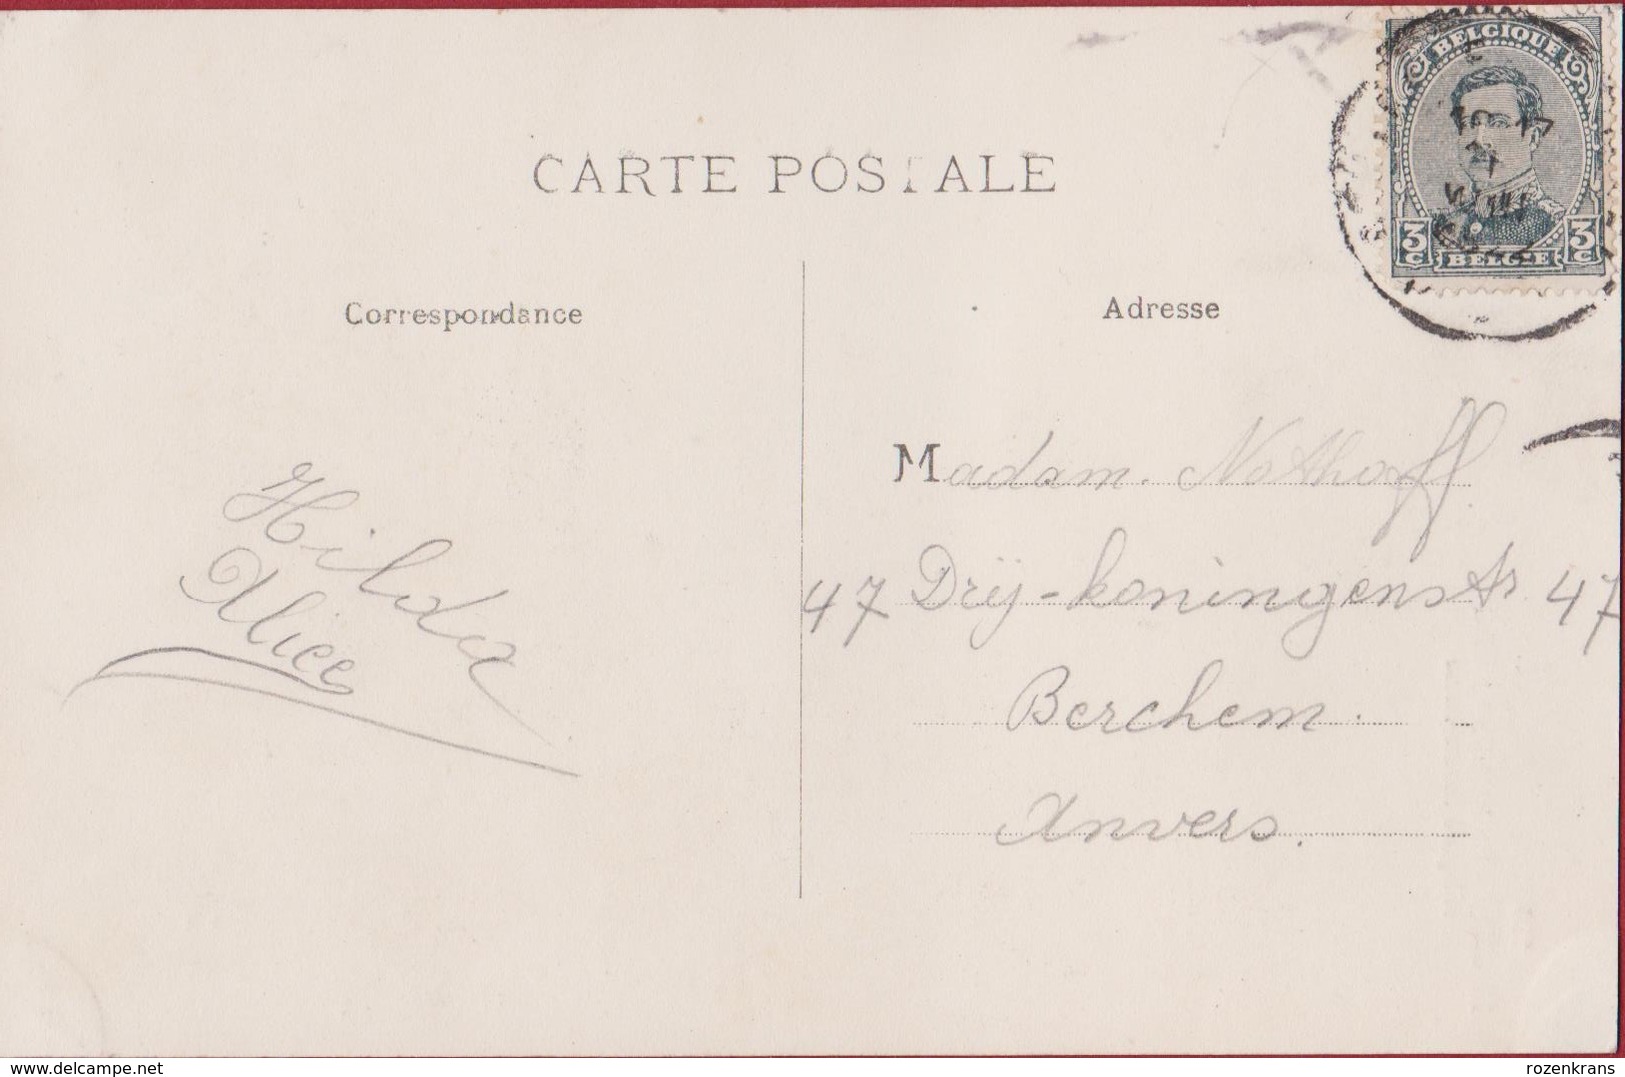 CARTE POSTALE
BELGIQUE
3C BELGIE 3C
Correspondance
Adresse
Hilda
Alice
Madam. Nothoff
47 Drij-koningenstr 47
Berchem.
Anvers.
delcampe.net
rozenkrans